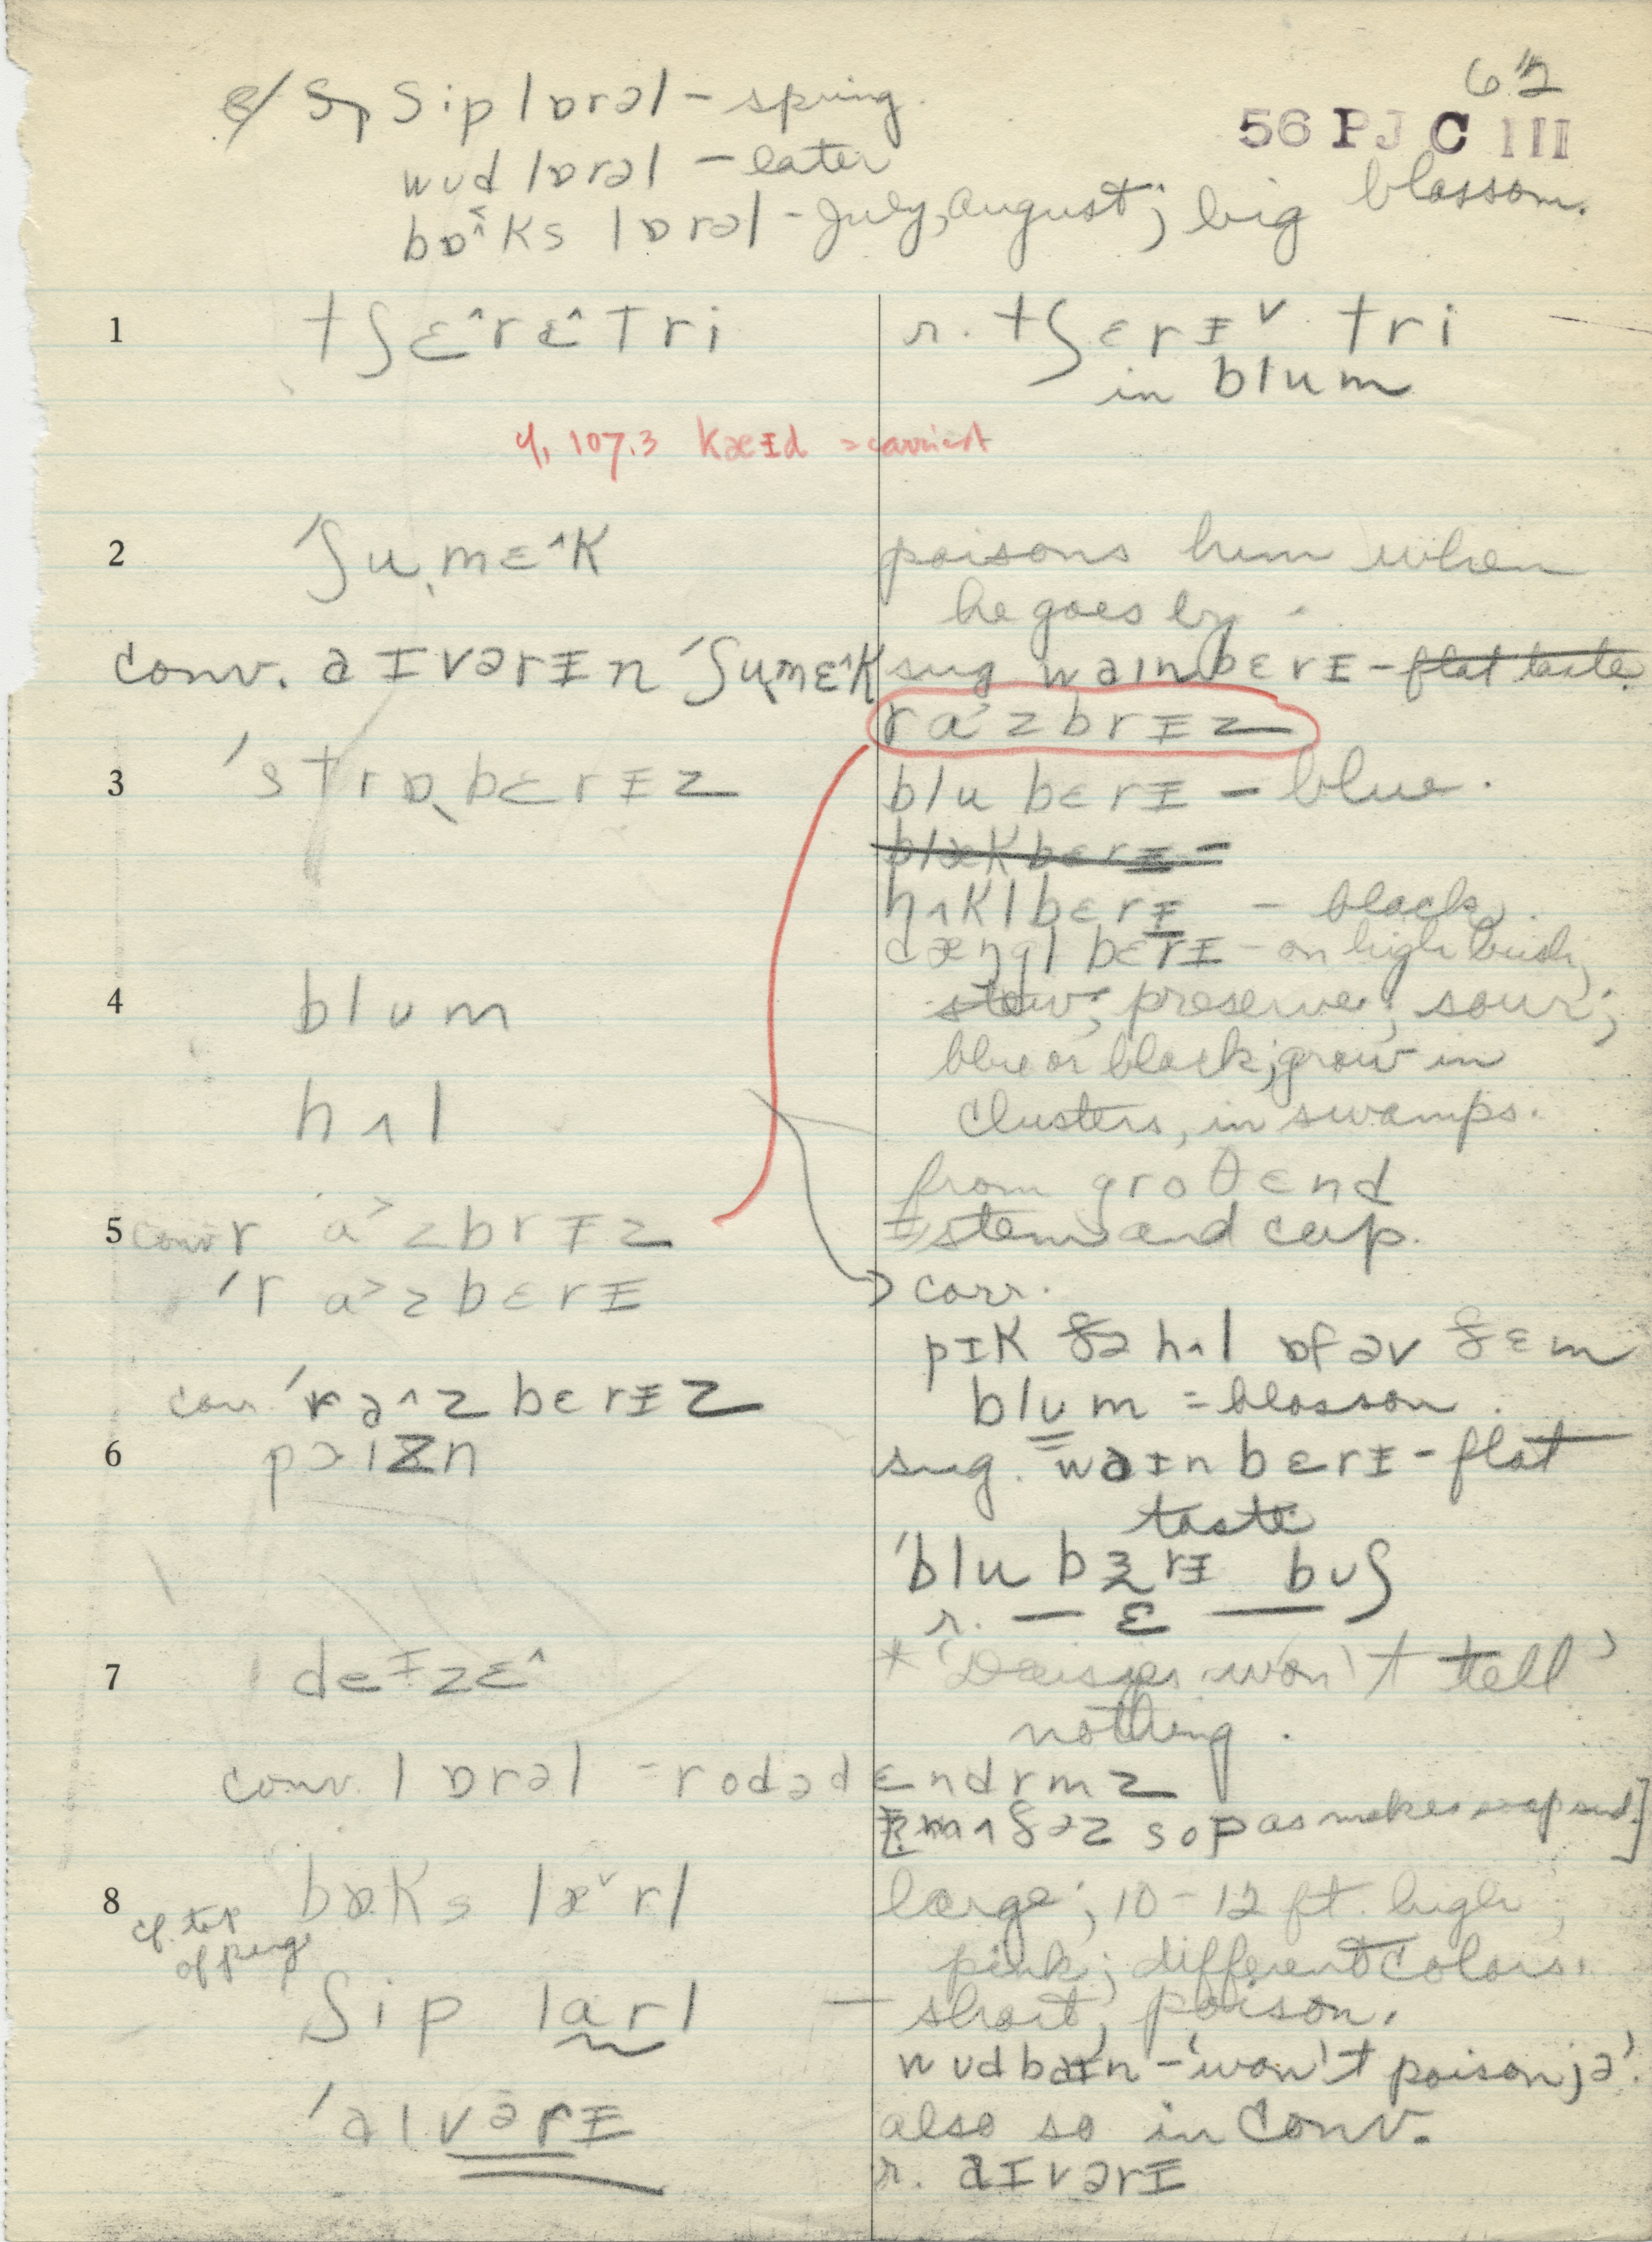 62
56 PJ C III
8/ Sp ʃip lɒrəl – spring.
wud lɒrəl – later
bɒ^ks lɒrəl – July, August; big blossom.
1 tʃɛ^rɛ^tri
r. tʃɛrɪ˅ tri
in blum
cf. 107.3 kæɪd = carried
2 ˈʃuˌmɛ^k
poisons him when
he goes by.
conv. aɪvərɪn ˈʃuˌmɛ^k
sug. waɪnbɛrɪ – flat taste.
ra>zbrɪz
3 ˈstrɒˌbɛrɪz
blubɛrɪ – blue.
blækbɛrɪ –
hʌklbɛrɪ – black.
dæŋglbɛrɪ – on high bush;
4 blum
stew; preserve; sour;
blue or black; grow in
hʌl
clusters, in swamps.
from groθ end
5 conv. ra>zbrɪz
stem and cap.
ˈra>zbɛrɪ
corr.
pɪk ðə hʌl ɒf əv ðɛm
corr. ˈra^zbɛrɪz
blum = blossom.
6 pɔɪzn
sug. waɪnbɛrɪ – flat
taste
ˈblubɜrɪ buʃ
r. — ɛ —
7 deɪzɛ^
* 'Daisies won't tell'
nothing.
conv. lɒrəl = rodədɛndrmz
mʌðəz sop as makes soap suds]
8 bɒks lɒ˅rl
cf. top
of page
large; 10–12 ft. high;
pink; different colors.
ʃip larl
– short, poison.
wudbaɪn – 'won't poison jə'.
ˈaɪvərɪ
also so in conv.
r. aɪvərɪ